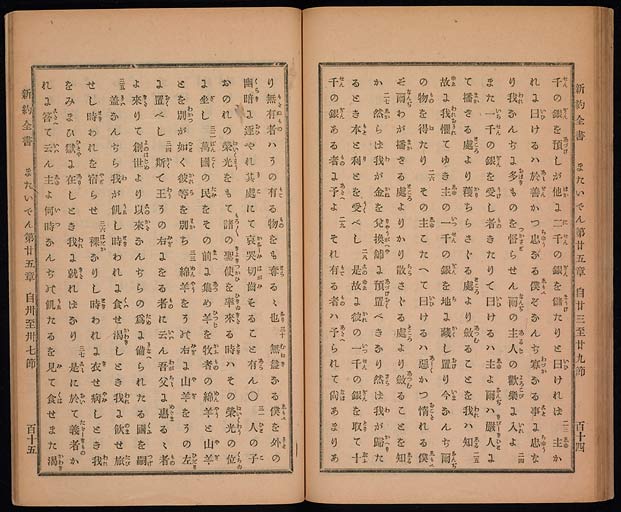 新約全書 またいでん第廿五章 自廿三至廿九節 百十四
千の銀を預しが他に二千の銀を儲たりと曰ければ 二三 主か
れに曰けるハ於善かつ忠ある僕ぞなんぢ寡なる事に忠な
り我なんぢに多ものを督らせん爾の主人の歡樂に入よ 二四
また一千の銀を受し者きたりて曰けるハ主よ爾ハ嚴人に
て播ざる處より穫ちらさゞる處より斂ることを我ハ知 二五
故に我懼てゆき主の一千の銀を地に藏し置り今なんぢ爾
の物を得たり 二六 その主こたへて曰けるハ惡かつ惰れる僕
ぞ爾わが播ざる處よりかり散さゞる處より斂ることを知
か 二七 然らば我が金を兌換舖に預置べきなり然ば我が歸た
るとき本と利とを受べし 二八 是故に彼の一千の銀を取て十
千の銀ある者に予よ 二九 それ有る者ハ予られて尚あまりあ
り無有者ハその有る物をも奪るゝ也 三十 無益なる僕を外の
幽暗に逐やれ其處にて哀哭切齒すること有ん〇 三一 人の子
おのれの榮光をもて諸の聖使を率來る時ハその榮光の位
に坐し 三二 萬國の民をその前に集め羊を牧者の綿羊と山羊
とを別が如く彼等を別ち 三三 綿羊をその右に山羊をその左
に置べし 三四 斯て王その右にをる者に云ん吾父に惠るゝ者
よ來りて創世より以來なんぢらの爲に備られたる國を嗣
三五 蓋なんぢら我が飢し時われに食せ渴しとき我に飲せ旅
せし時われを宿らせ 三六 裸なりし時われに衣せ病しとき我
をみまひ獄に在しとき我に就ればなり 三七 是に於て義者か
れに答て云ん主よ何時なんぢの飢たるを見て食せまた渴
新約全書 またいでん第廿五章 自卅至卅七節 百十五